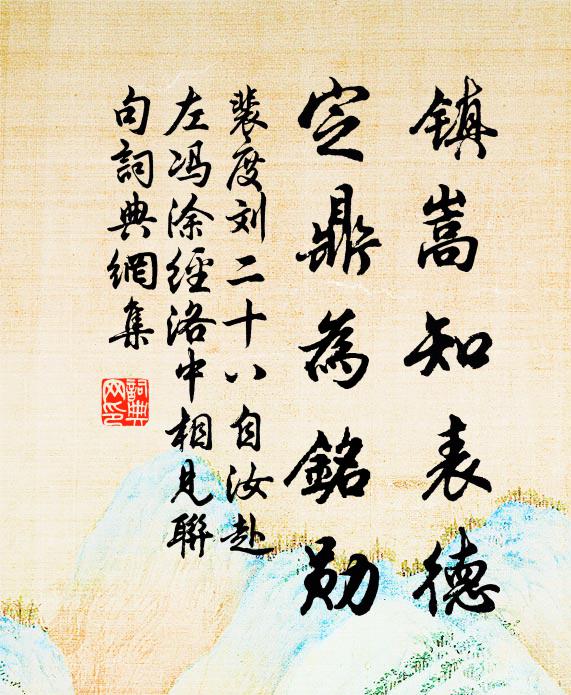 鎮嵩知表德
定鼎為銘勋
裴度刘二十八自汝赴
左冯涂經洛中相見聯
句詞典網集
詞典网印